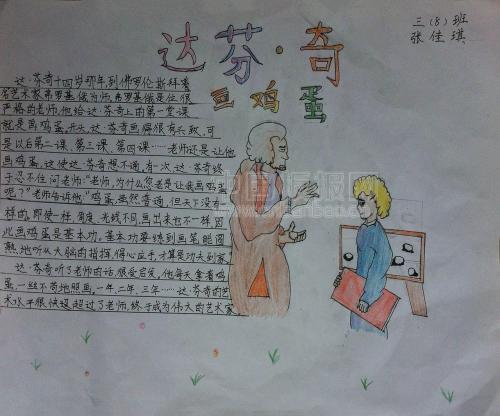 三(8)班
张佳琪
达·芬·奇
画鸡蛋
达·芬奇十四岁那年,到佛罗伦斯拜着
名艺术家弗罗基俄为师,弗罗基俄是位很
严格的老师,他给达·芬奇上的第一堂课
就是画鸡蛋,开头,达·芬奇画得很有兴致,可
是以后第二课、第三课、第四课……老师还是让他
画鸡蛋,这使达·芬奇想不通,有一次,达·芬奇终
于忍不住问老师:“老师,为什么您老是让我画鸡蛋
呢?”老师告诉他:“鸡蛋,虽然普通,但天下没有一
样的,即使一样,角度、光线不同,画出来也不一样,因
此,画鸡蛋是基本功,基本功要练到画笔能圆
熟地听从大脑的指挥,得心应手,才算是功夫到家。
达·芬奇听了老师的话,很受启发,他每天拿着鸡
蛋,一丝不苟地照画,一年、二年、三年……达·芬奇的艺
术水平很快超过了老师,终于成为伟大的艺术家